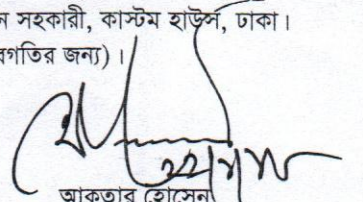 সহকারী, কাস্টম হাউস, ঢাকা।
জন্য)।
আকতার হোসেন